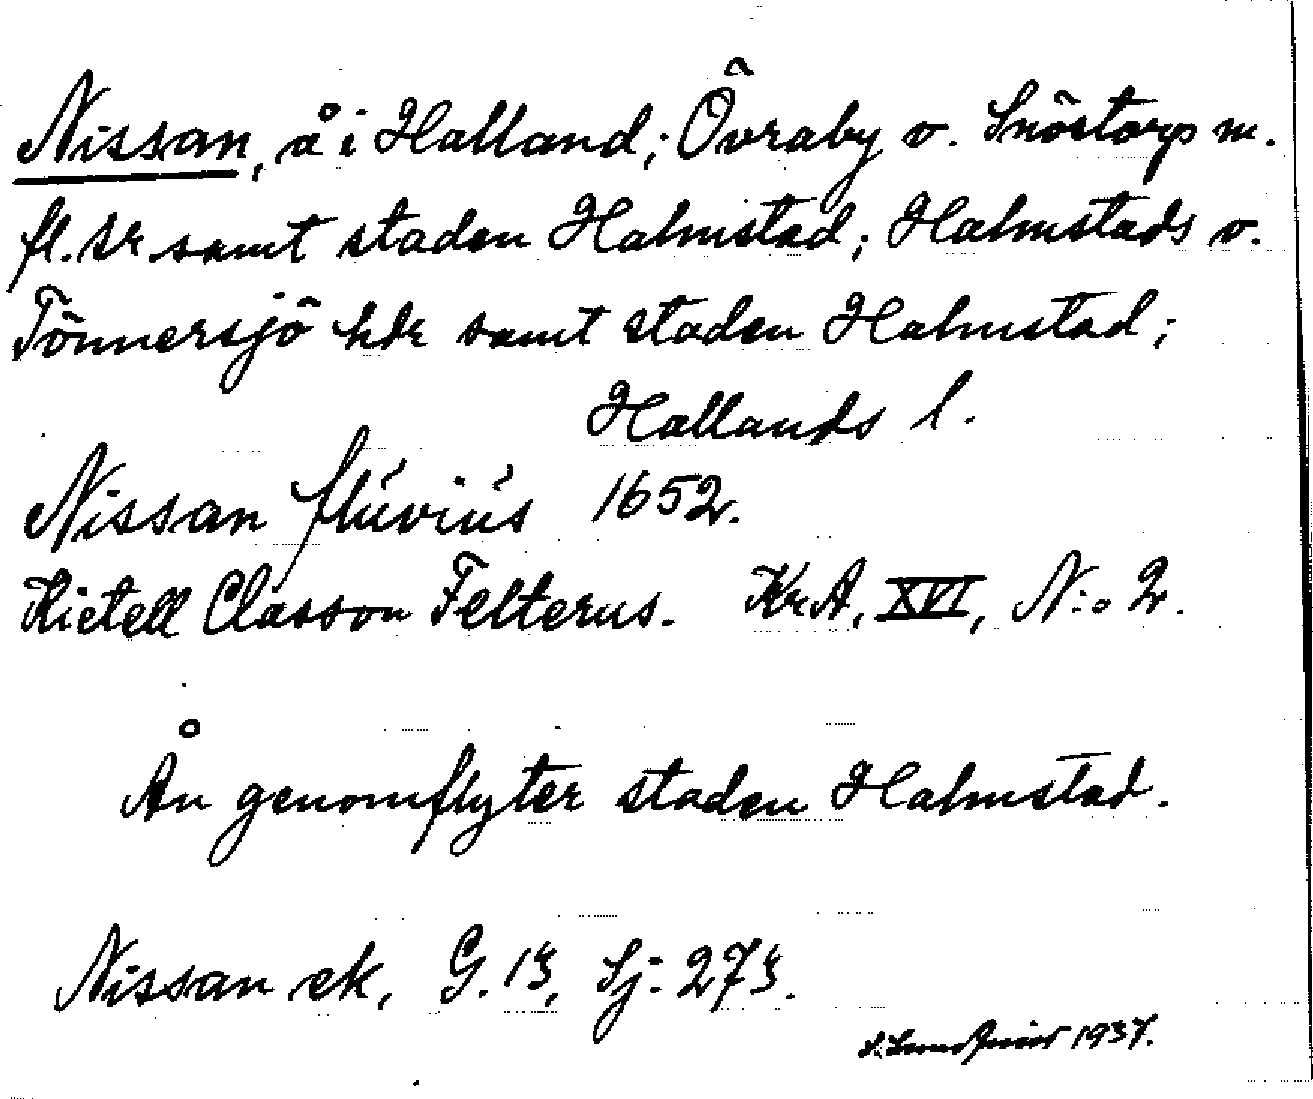 Nissan, å i Halland; Övraby o. Snöstorp m.
fl. sr samt staden Halmstad; Halmstads o.
Tönnersjö hdr samt staden Halmstad;
Hallands l.
Nissan fluvius 1652.
Kietell Classon Felterus. KrA, XVI, N:o 2.
Ån genomflyter staden Halmstad.
Nissan ek, G. 13, Sj: 273.
1937.